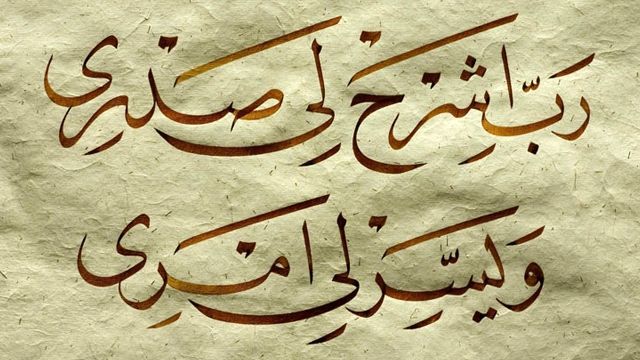 رَبِّ اشْرَحْ لِي صَدْرِى
وَيَسِّرْ لِي امْرِى